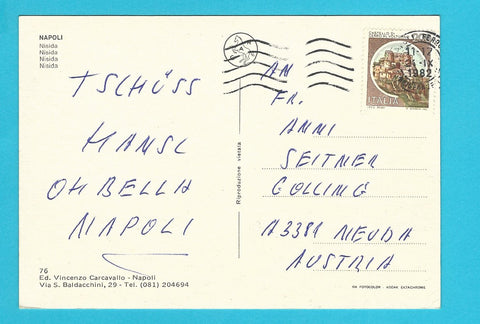 NAPOLI
Nisida
Nisida
Nisida
Nisida
TSCHÜSS
HANSL
OH BELLA
NAPOLI
76
Ed. Vincenzo Carcavallo - Napoli
Via S. Baldacchini, 29 - Tel. (081) 204694
Riproduzione vietata
AN
FR.
ANNI
SEITNER
GOLLING
A3381 NEUDA
AUSTRIA
ITALIA
1982
KODAK EKTACHROME